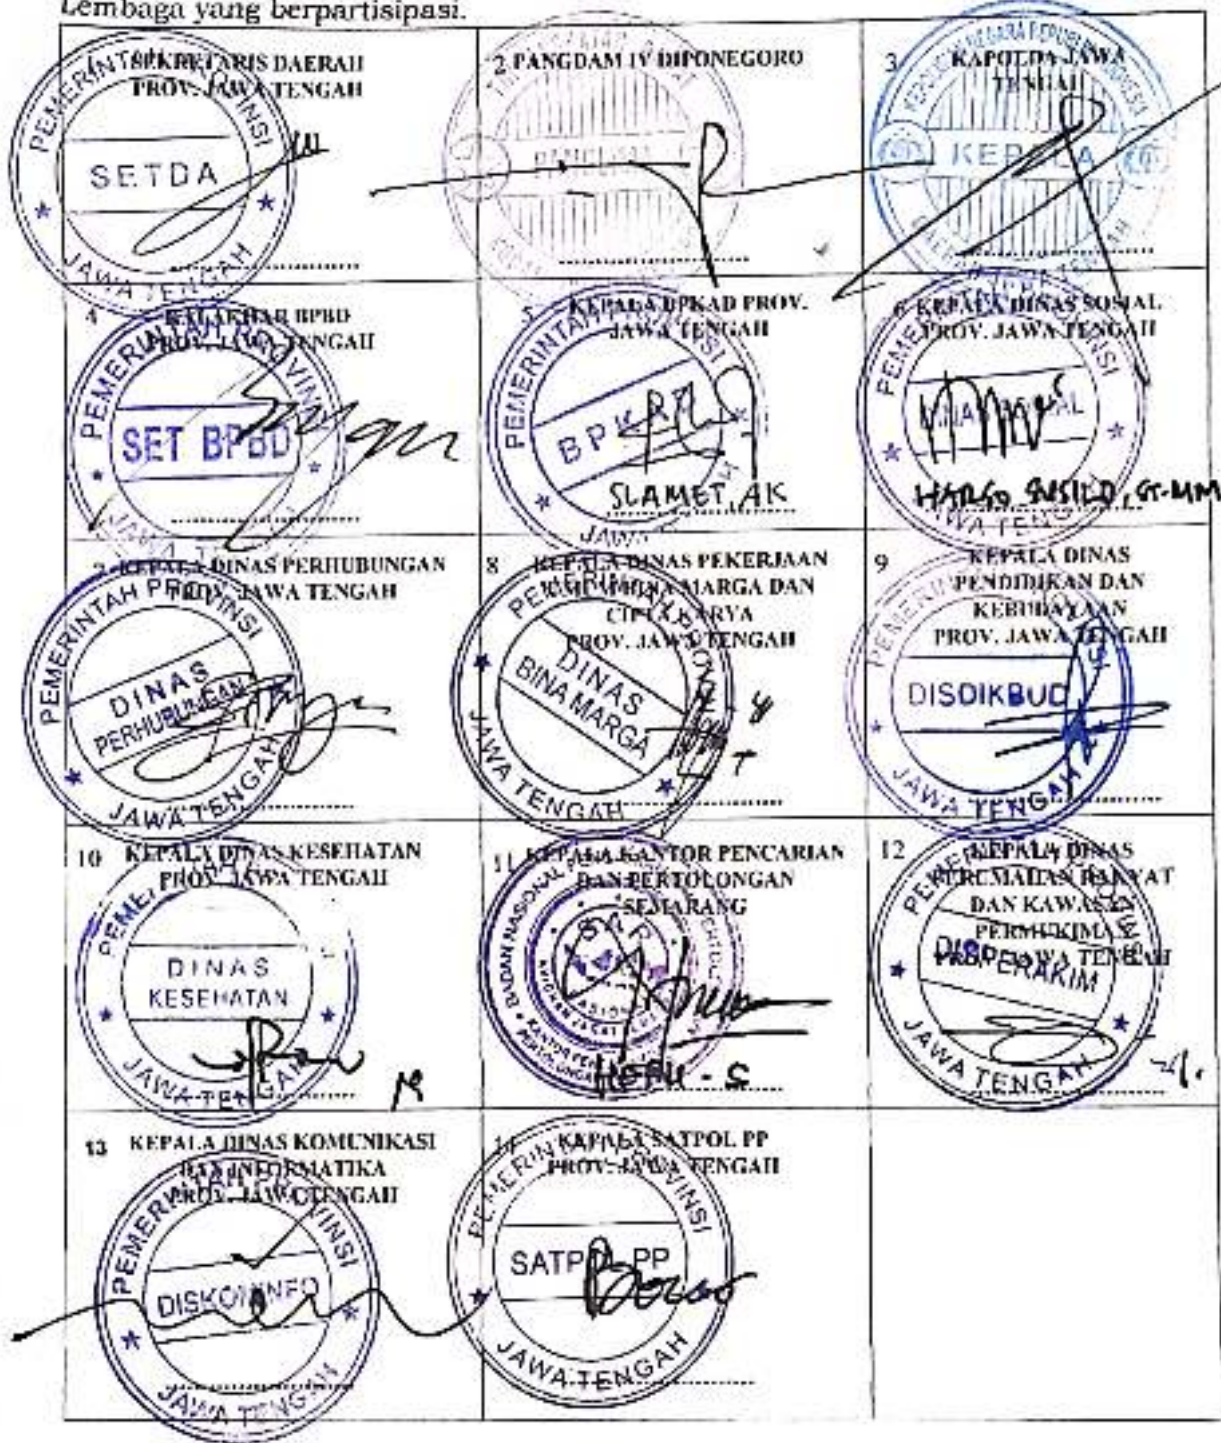 Lembaga yang berpartisipasi.
1 SEKRETARIS DAERAH
PROV. JAWA TENGAH
PEMERINTAH PROVINSI
SETDA
JAWA TENGAH
2 PANGDAM IV DIPONEGORO
3 KAPOLDA JAWA
TENGAH
KEPALA
4 KALAKHAR BPBD
PROV. JAWA TENGAH
PEMERINTAH PROVINSI
SET BPBD
JAWA
5 KEPALA BPKAD PROV.
JAWA TENGAH
PEMERINTAH
SLAMET, AK
6 KEPALA DINAS SOSIAL
PROV. JAWA TENGAH
JAWA TENGAH
7 KEPALA DINAS PERHUBUNGAN
PROV. JAWA TENGAH
PEMERINTAH PROVINSI
DINAS
PERHUBUNGAN
JAWA TENGAH
8 KEPALA DINAS PEKERJAAN
UMUM BINA MARGA DAN
CIPTA KARYA
PROV. JAWA TENGAH
DINAS
BINA MARGA
JAWA TENGAH
9 KEPALA DINAS
PENDIDIKAN DAN
KEBUDAYAAN
PROV. JAWA TENGAH
DISDIKBUD
JAWA TENGAH
10 KEPALA DINAS KESEHATAN
PROV. JAWA TENGAH
DINAS
KESEHATAN
JAWA TENGAH
11 KEPALA KANTOR PENCARIAN
DAN PERTOLONGAN
SEMARANG
BADAN NASIONAL
HERU - S
12 KEPALA DINAS
PERUMAHAN RAKYAT
DAN KAWASAN
PERMUKIMAN
PROV. JAWA TENGAH
DISPERAKIM
JAWA TENGAH
13 KEPALA DINAS KOMUNIKASI
DAN INFORMATIKA
PROV. JAWA TENGAH
PEMERINTAH PROVINSI
DISKOMINFO
JAWA TENGAH
14 KEPALA SATPOL PP
PROV. JAWA TENGAH
PEMERINTAH PROVINSI
SATPOL PP
JAWA TENGAH